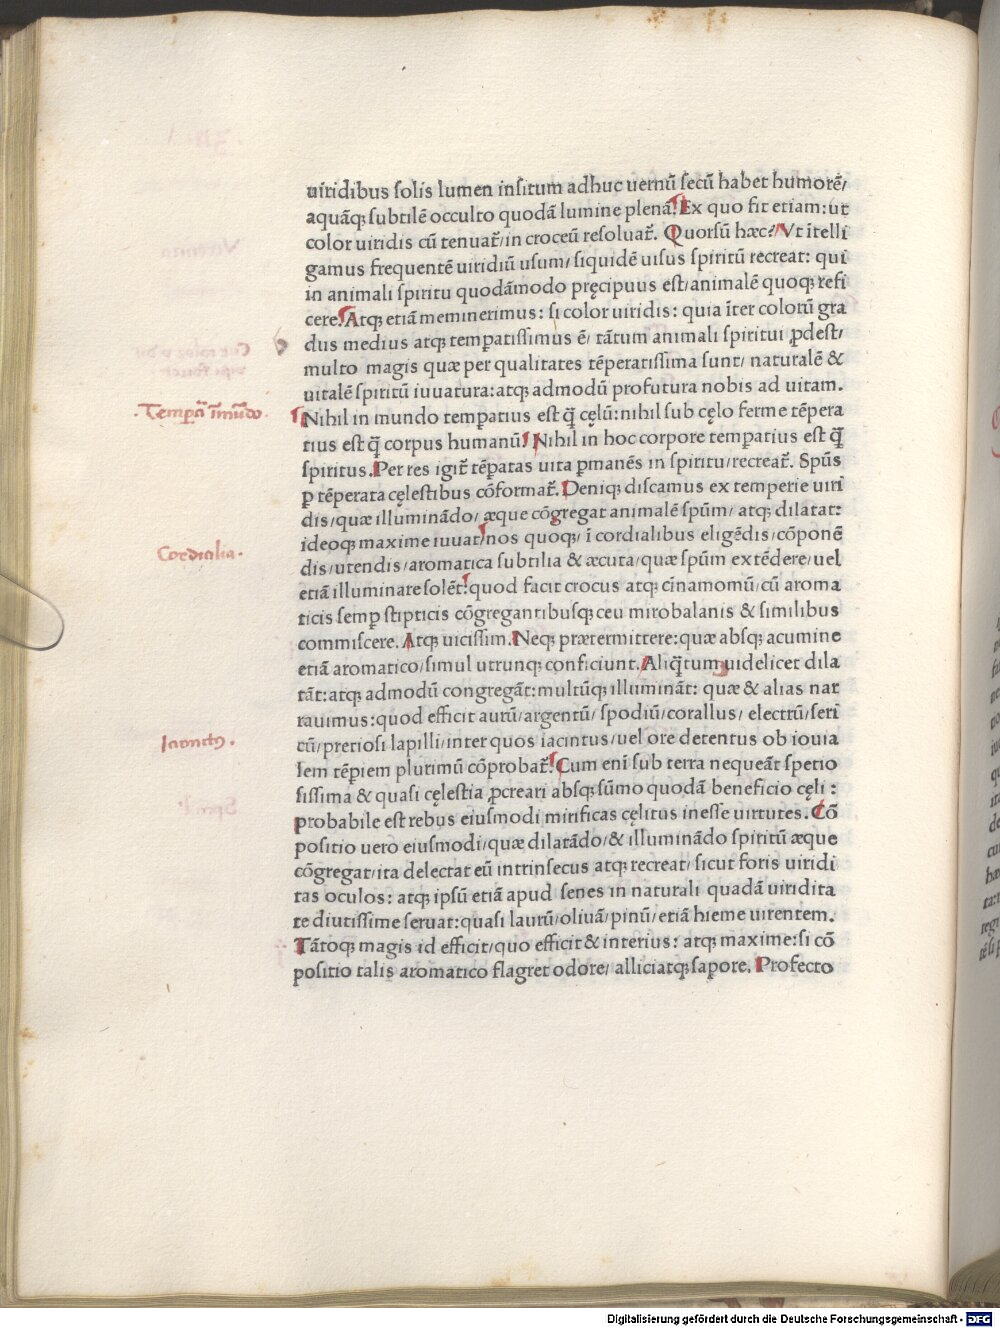 uiridibus solis lumen insitum adhuc uernū secū habet humorē/
aquāq; subtilē occulto quodā lumine plenā. Ex quo fit etiam: ut
color uiridis cū tenuat̄/ in croceū resoluat̄. Quorsū hæc? Vt ītelli
gamus frequentē uiridiū usum/ siquidē uisus spiritū recreat: qui
in animali spiritu quodāmodo pręcipuus est/ animalē quoq; refi
cere. Atq; etiā meminerimus: si color uiridis: quia īter colorū gra
dus medius atq; temꝑatissimus ē/ tātum animali spiritui ꝓdest/
multo magis quæ per qualitates tēperatissima sunt/ naturalē &
uitalē spiritū iuuatura: atq; admodū profutura nobis ad uitam.
.Temꝑā ī mūdo.
Nihil in mundo temꝑatius est q̄ cęlū: nihil sub cęlo ferme tēpera
tius est q̄ corpus humanū. Nihil in hoc corpore temꝑatius est q̄
spiritus. Per res igit̄ tēꝑatas uita ꝑmanēs in spiritu/ recreat̄. Spūs
ꝑ tēperata cęlestibus cōformat̄. Deniq; discamus ex temperie uiri
dis/ quæ illuminādo/ æque cōgregat animalē spūm/ atq; dilatat:
ideoq; maxime iuuat/ nos quoq; ī cordialibus eligēdis/ cōponē
Cordialia.
dis/ utendis/ aromatica subtilia & æcuta/ quæ spūm extēdere/ uel
etiā illuminare solēt: quod facit crocus atq; cinamomū/ cū aroma
ticis semꝑ stipticis cōgregantibusq; ceu mirobalanis & similibus
commiscere. Atq; uicissim. Neq; prætermittere: quæ absq; acumine
etiā aromatico/ simul utrunq; conficiunt. Aliq̄tum uidelicet dila
tāt: atq; admodū congregāt: multūq; illumināt: quæ & alias nar
rauimus: quod efficit aurū/ argentū/ spodiū/ corallus/ electrū/ seri
cū/ pretiosi lapilli/ inter quos iacintus/ uel ore detentus ob iouia
lem tēpiem plurimū cōprobat̄. Cum enī sub terra nequeāt spetio
sissima & quasi cęlestia ꝓcreari absq; sūmo quodā beneficio cęli:
probabile est rebus eiusmodi mirificas cęlitus inesse uirtutes. Cō
positio uero eiusmodi/ quæ dilatādo/ & illuminādo spiritū æque
cōgregat/ ita delectat eū intrinsecus atq; recreat/ sicut foris uiridi
tas oculos: atq; ipsū etiā apud senes in naturali quadā uiridita
te diutissime seruat: quasi laurū/ oliuā/ pinū/ etiā hieme uirentem.
Tātoq; magis id efficit/ quo efficit & interius: atq; maxime: si cō
positio talis aromatico flagret odore/ alliciatq; sapore. Profecto
Digitalisierung gefördert durch die Deutsche Forschungsgemeinschaft - DFG